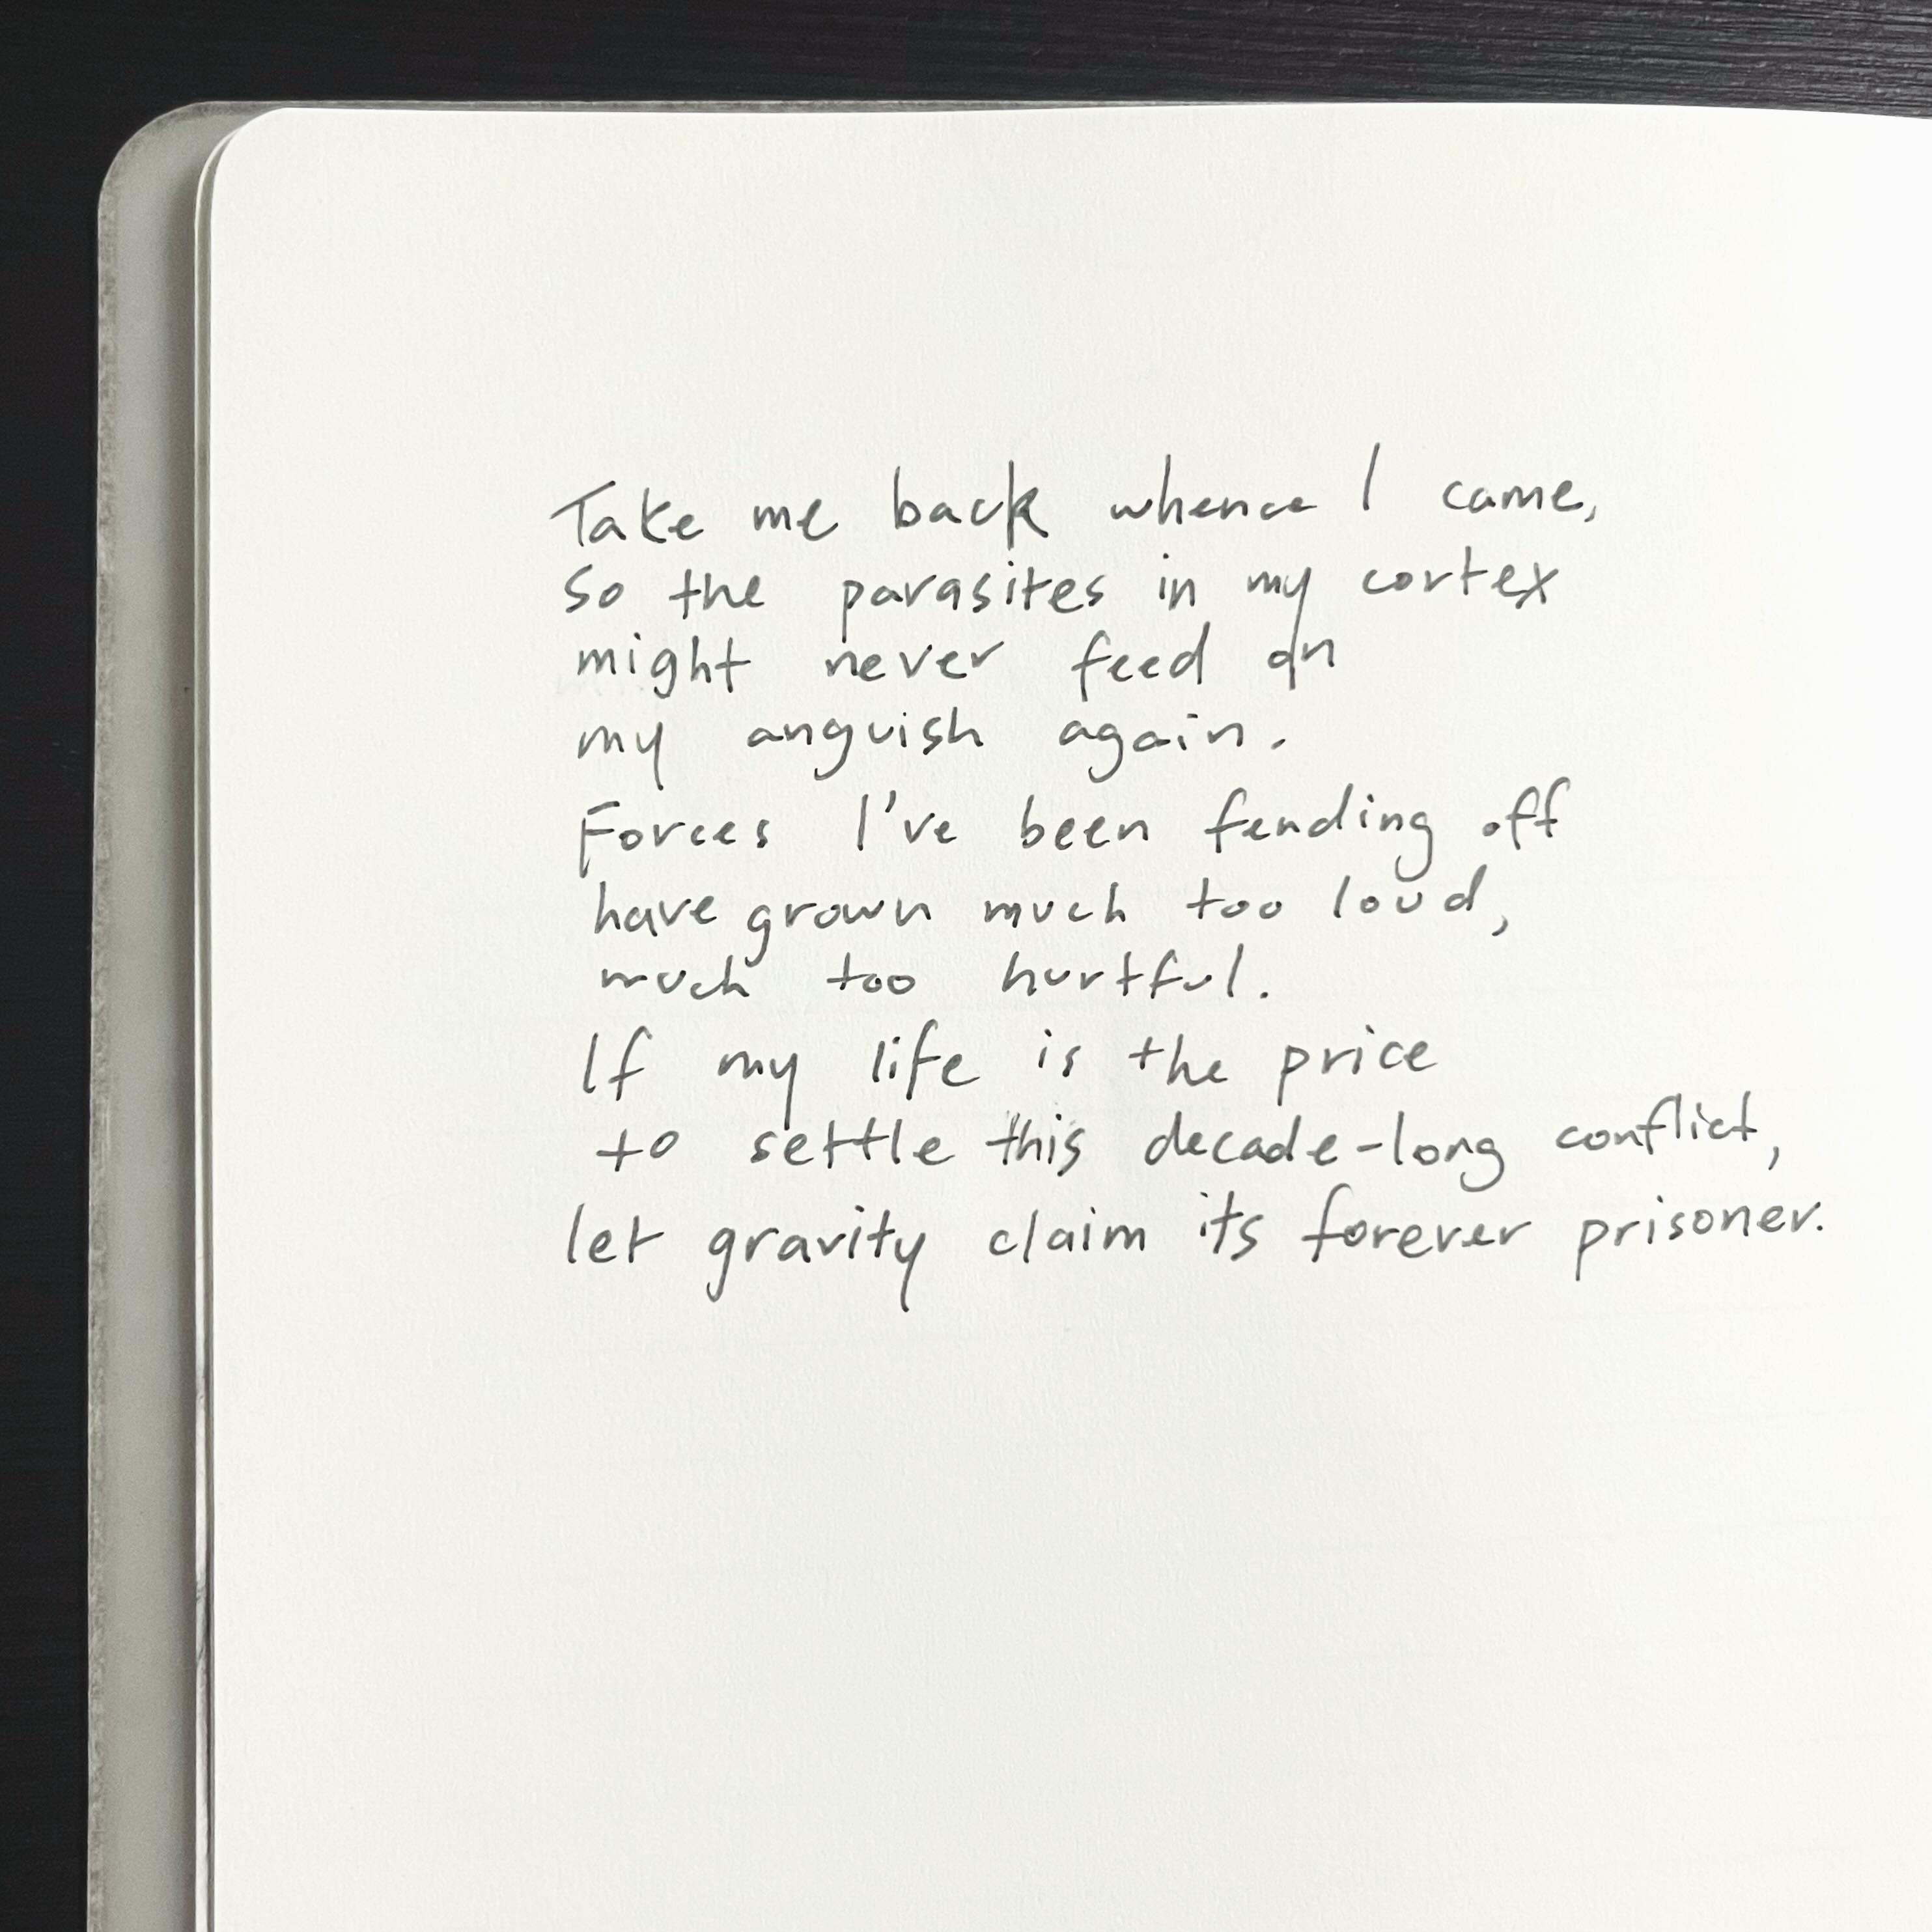 Take me back whence I came,
So the parasites in my cortex
might never feed on
my anguish again.
Forces I've been fending off
have grown much too loud,
much too hurtful.
If my life is the price
to settle this decade-long conflict,
let gravity claim its forever prisoner.